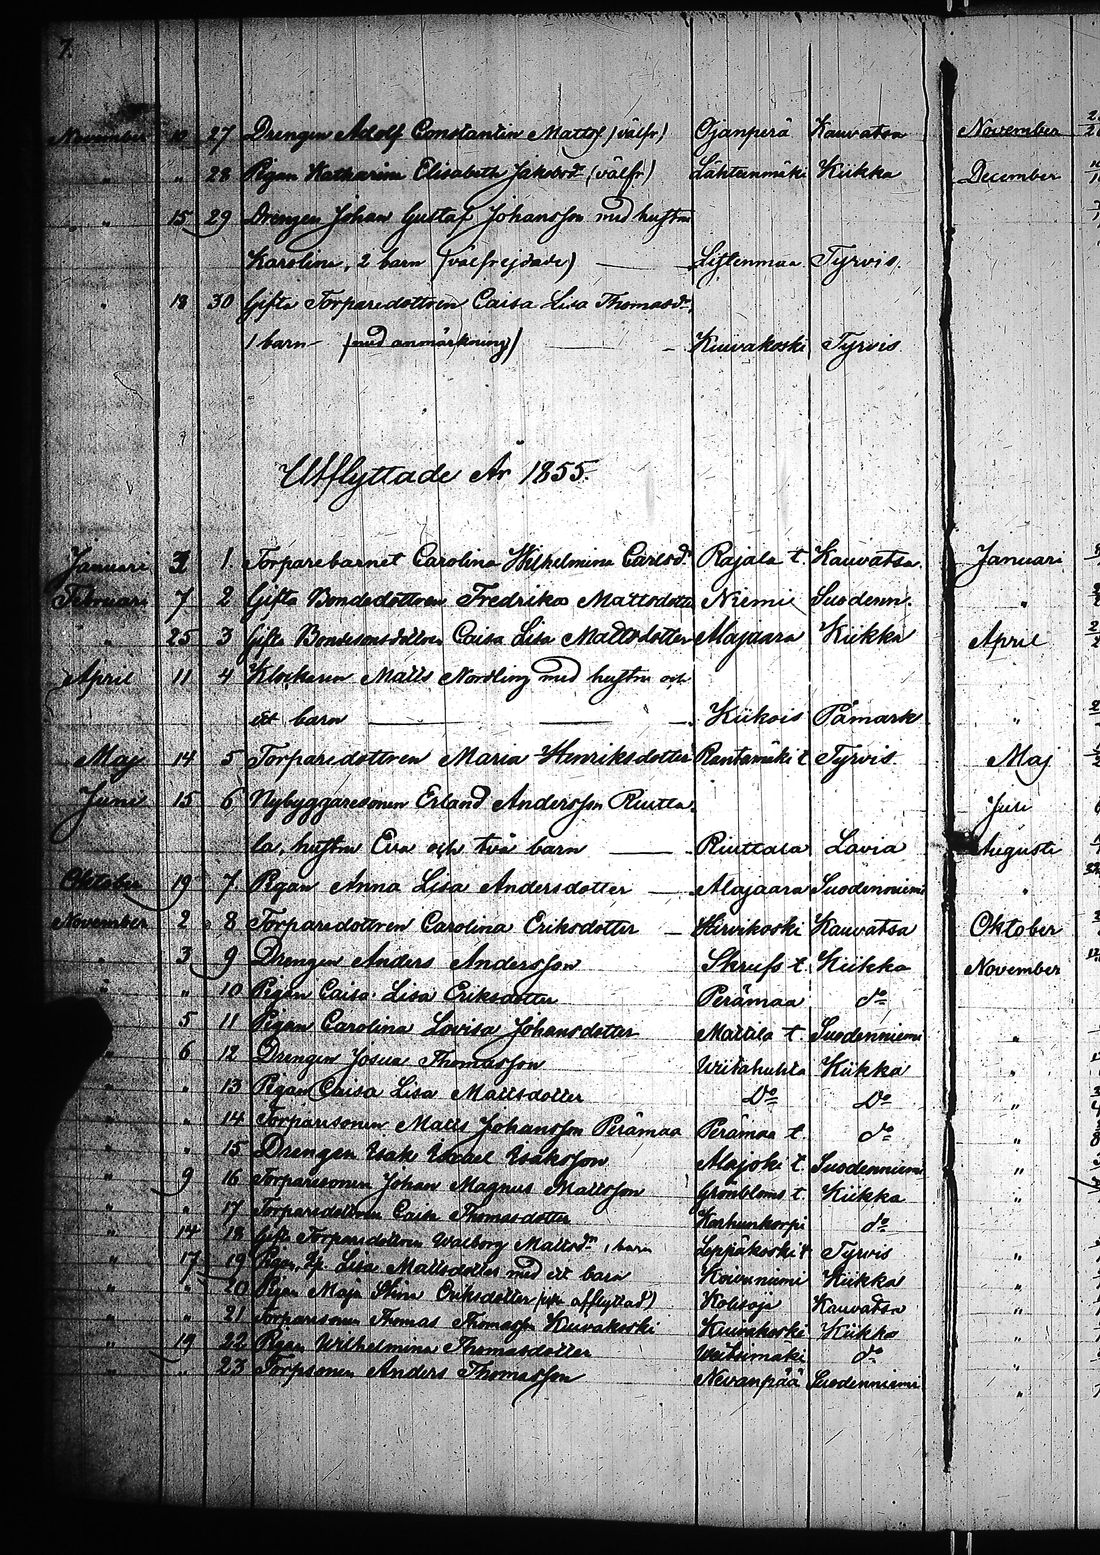 7.
November 12 27 Drengen Adolf Constantin Mattss. (välfr) Ojanperä Kauvatsa November
" " 28 Pigan Katharina Elisabeth Jakobsdr (välfr) Lähteenmäki Kiikka December
" 15 29 Drengen Johan Gustaf Johansson med hustru
Karolina, 2 barn (välfrejdade) Tyrvis.
" 18 30 Gifta Torparedottren Caisa Lisa Thomasdr,
1 barn (med anmärkning) Kuivakoski Tyrvis
Utflyttade År 1855.
Januari 2 1 Torparebarnet Carolina Wilhelmina Carlsdr. Rajala t. Kauvatsa Januari
Februari 7 2 Gifta Bondedottren Fredrika Mattsdotter Niemi Suodenn. "
" 25 3 Gifta Bondesonsdottren Caisa Lisa Mattsdotter Alajaara Kiikka April
April 11 4 Klockaren Matts Nordling med hustru och
ett barn Kiikois Påmark "
Maj 14 5 Torparedottren Maria Henriksdotter Rantamäki t Tyrvis Maj
Juni 15 6 Nybyggaresonen Erland Andersson Riutta-
la, hustru Eva och två barn Riuttala Lavia Augusti
Oktober 19 7 Pigan Anna Lisa Andersdotter Alajaara Suodenniemi "
November 2 8 Torparedottren Carolina Eriksdotter Hirvikoski Kauvatsa Oktober
" 3 9 Drengen Anders Andersson Skrufs t. Kiikka November
" " 10 Pigan Caisa Lisa Eriksdotter Perämaa do
" 5 11 Pigan Carolina Lovisa Johansdotter Mattila t. Suodenniemi "
" 6 12 Drengen Josua Thomasson Wiitahuhta Kiikka "
" " 13 Pigan Caisa Lisa Mattsdotter Do Do "
" " 14 Torparesonen Matts Johansson Perämaa Perämaa t. do "
" " 15 Drengen Isak Israel Isaksson Alajoki t. Suodenniemi "
" 9 16 Torparesonen Johan Magnus Mattsson Grönbloms t. Kiikka "
" " 17 Torparedottren Caisa Thomasdotter Karhunkorpi do
" 14 18 Gifta Torparedottren Walborg Mattsdr 1 barn Leppäkoski t Tyrvis "
" 17 19 Pigan Lisa Mattsdotter med ett barn Koivuniemi Kiikka "
" " 20 Pigan Maja Stina Eriksdotter (ej afflyttad) Kolisoja Kauvatsa "
" " 21 Torparesonen Thomas Thomasson Kuivakoski Kuivakoski Kiikka "
" 19 22 Pigan Wilhelmina Thomasdotter do "
" " 23 Torpsonen Anders Thomasson Nevanpää Suodenniemi "